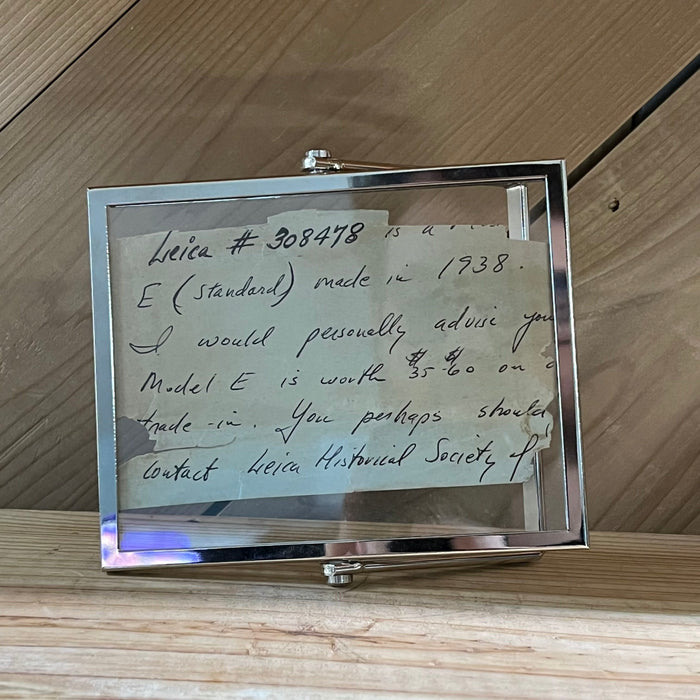 Leica # 308478 is a
E (standard) made in 1938.
I would personally advise you
Model E is worth $35-$60 on a
trade-in. You perhaps should
contact Leica Historical Society of